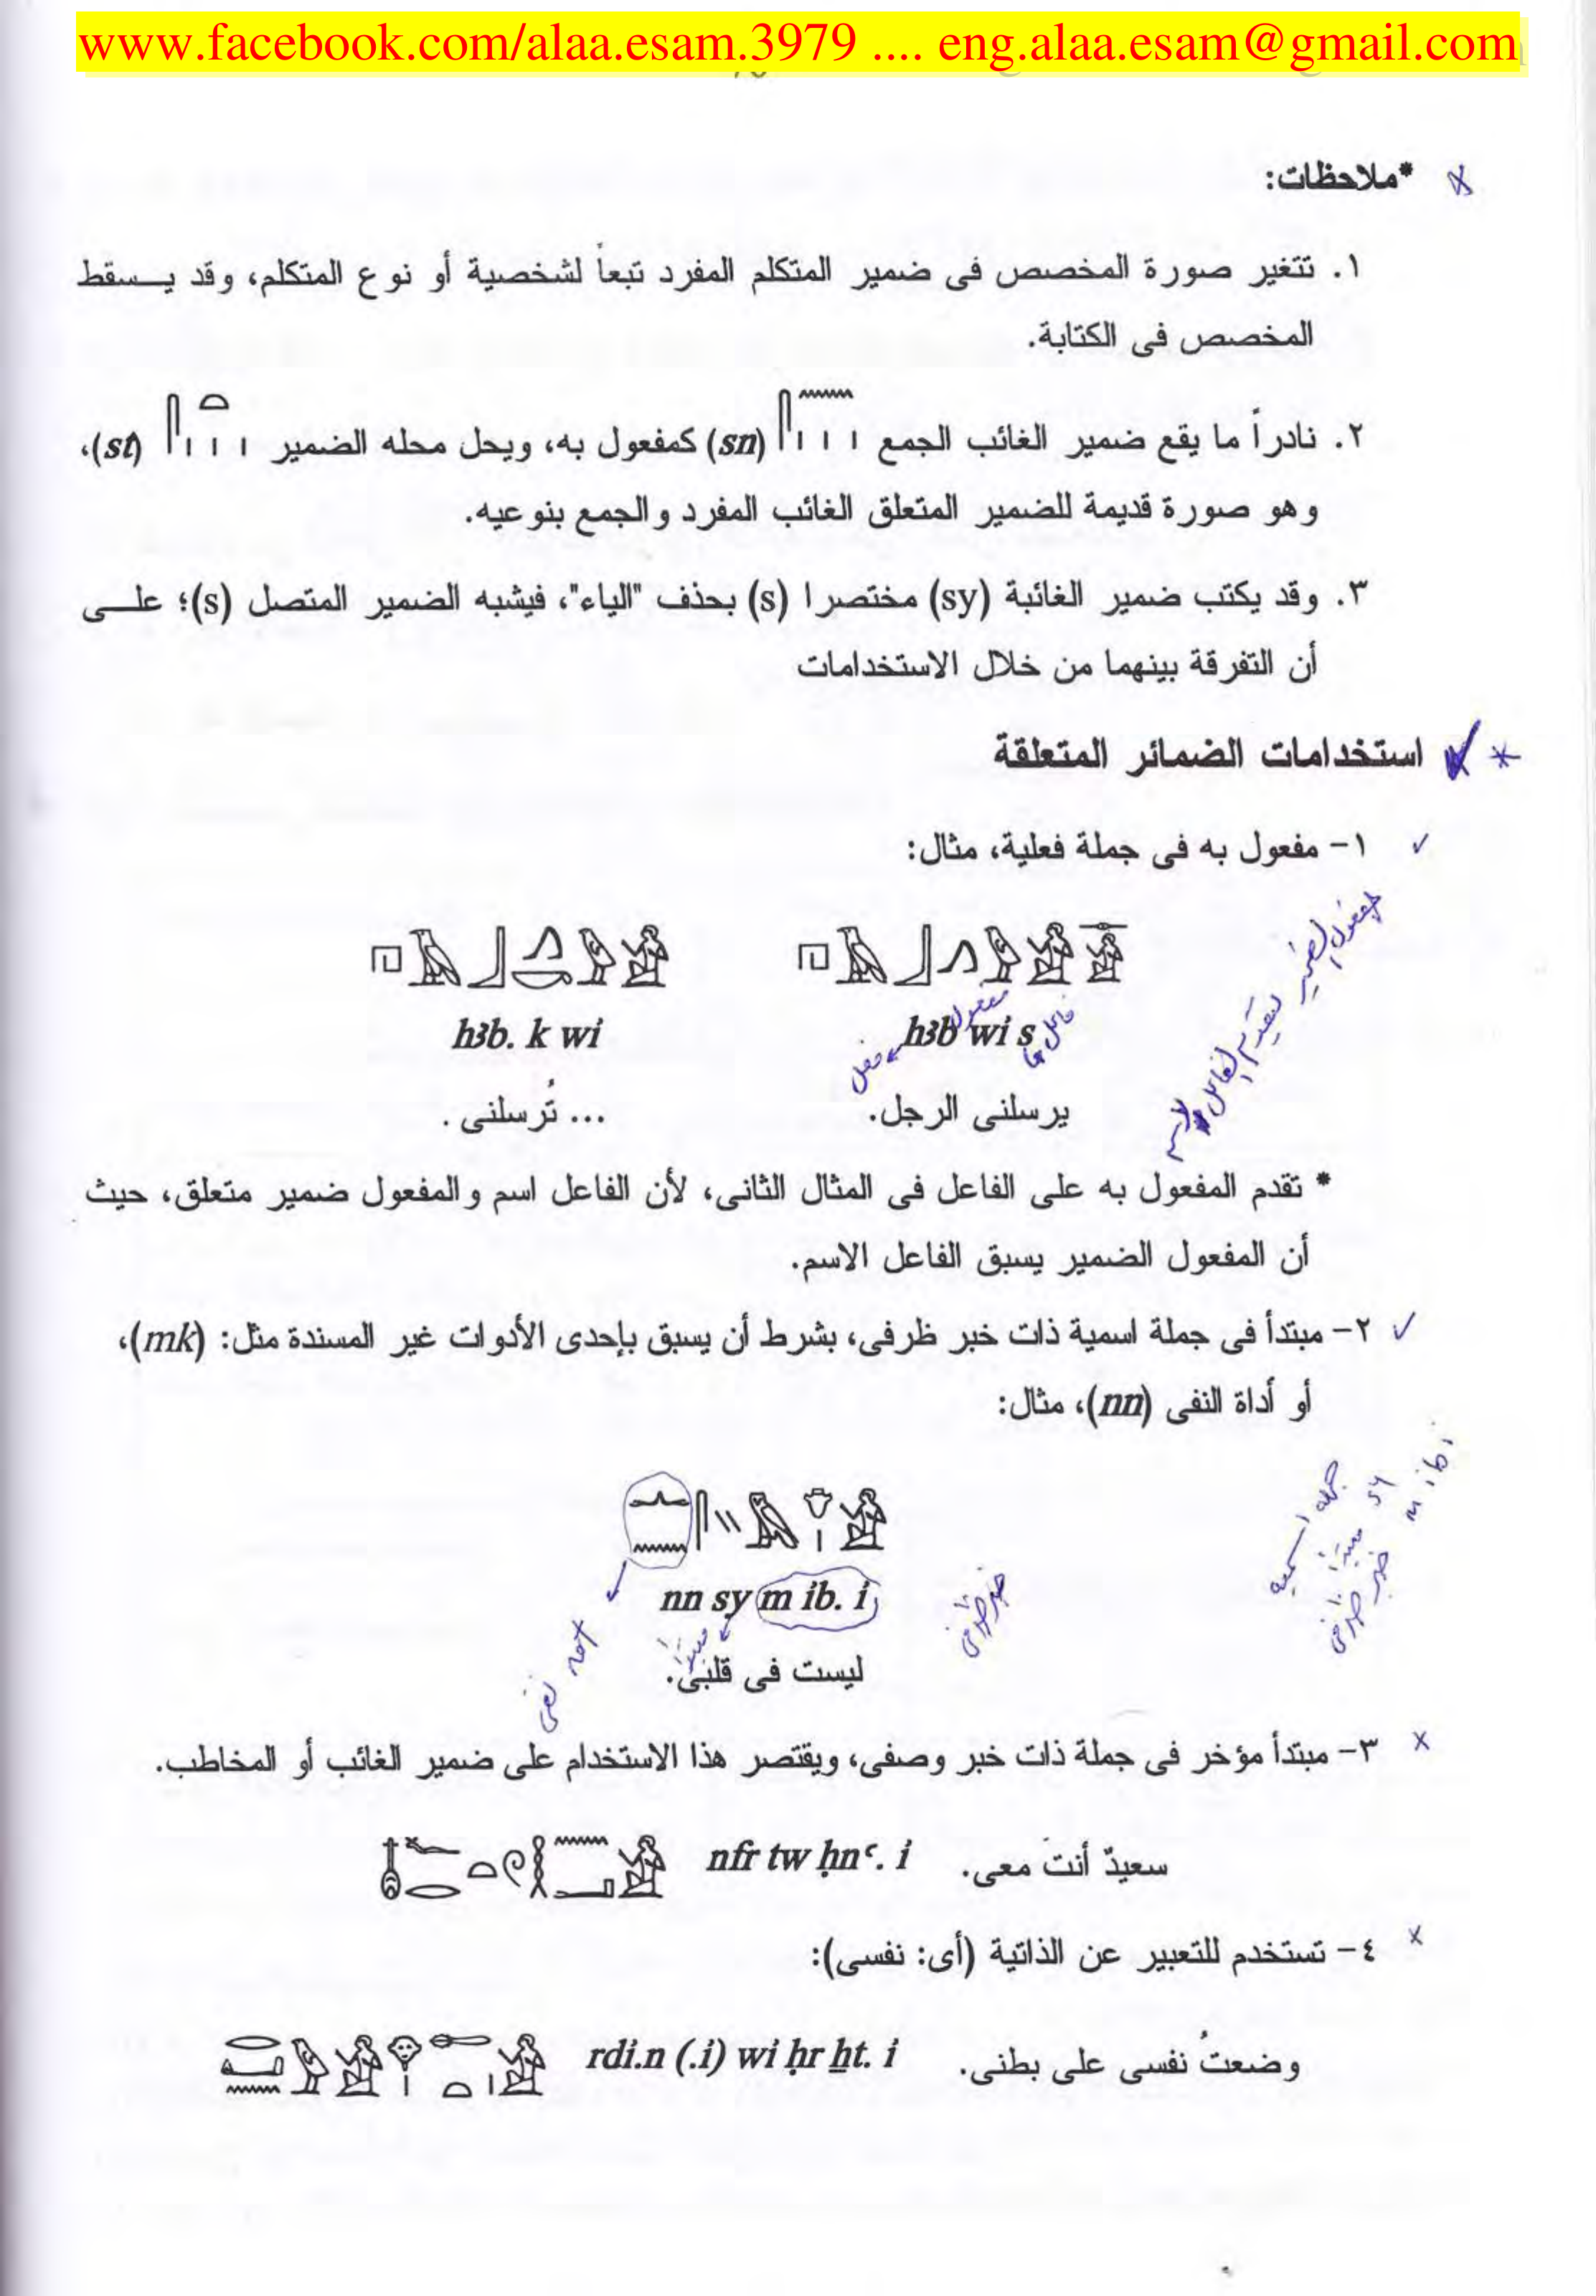 www.facebook.com/alaa.esam.3979 .... eng.alaa.esam@gmail.com
*ملاحظات:
١. تتغير صورة المخصص فى ضمير المتكلم المفرد تبعاً لشخصية أو نوع المتكلم، وقد يسقط
المخصص فى الكتابة.
٢. نادراً ما يقع ضمير الغائب الجمع (sn) كمفعول به، ويحل محله الضمير (st)،
وهو صورة قديمة للضمير المتعلق الغائب المفرد والجمع بنوعيه.
٣. وقد يكتب ضمير الغائبة (sy) مختصرا (s) بحذف "الياء"، فيشبه الضمير المتصل (s)؛ على
أن التفرقة بينهما من خلال الاستخدامات
استخدامات الضمائر المتعلقة
١- مفعول به فى جملة فعلية، مثال:
مفعول
فاعل
فعل
hꜣb wi s
hꜣb. k wi
يرسلنى الرجل.
... تُرسلنى .
* تقدم المفعول به على الفاعل فى المثال الثانى، لأن الفاعل اسم والمفعول ضمير متعلق، حيث
أن المفعول الضمير يسبق الفاعل الاسم.
٢- مبتدأ فى جملة اسمية ذات خبر ظرفى، بشرط أن يسبق بإحدى الأدوات غير المسندة مثل: (mk)،
أو أداة النفى (nn)، مثال:
جملة اسمية
sy مبتدأ
m ib i
خبر ظرفى
nn sy m ib. i
خبر ظرفى
مبتدأ
not نفى
ليست فى قلبى.
٣- مبتدأ مؤخر فى جملة ذات خبر وصفى، ويقتصر هذا الاستخدام على ضمير الغائب أو المخاطب.
سعيدٌ أنتَ معى. nfr tw ḥnꜥ. i
٤- تستخدم للتعبير عن الذاتية (أى: نفسى):
وضعتُ نفسى على بطنى. rdi.n (.i) wi ḥr ẖt. i